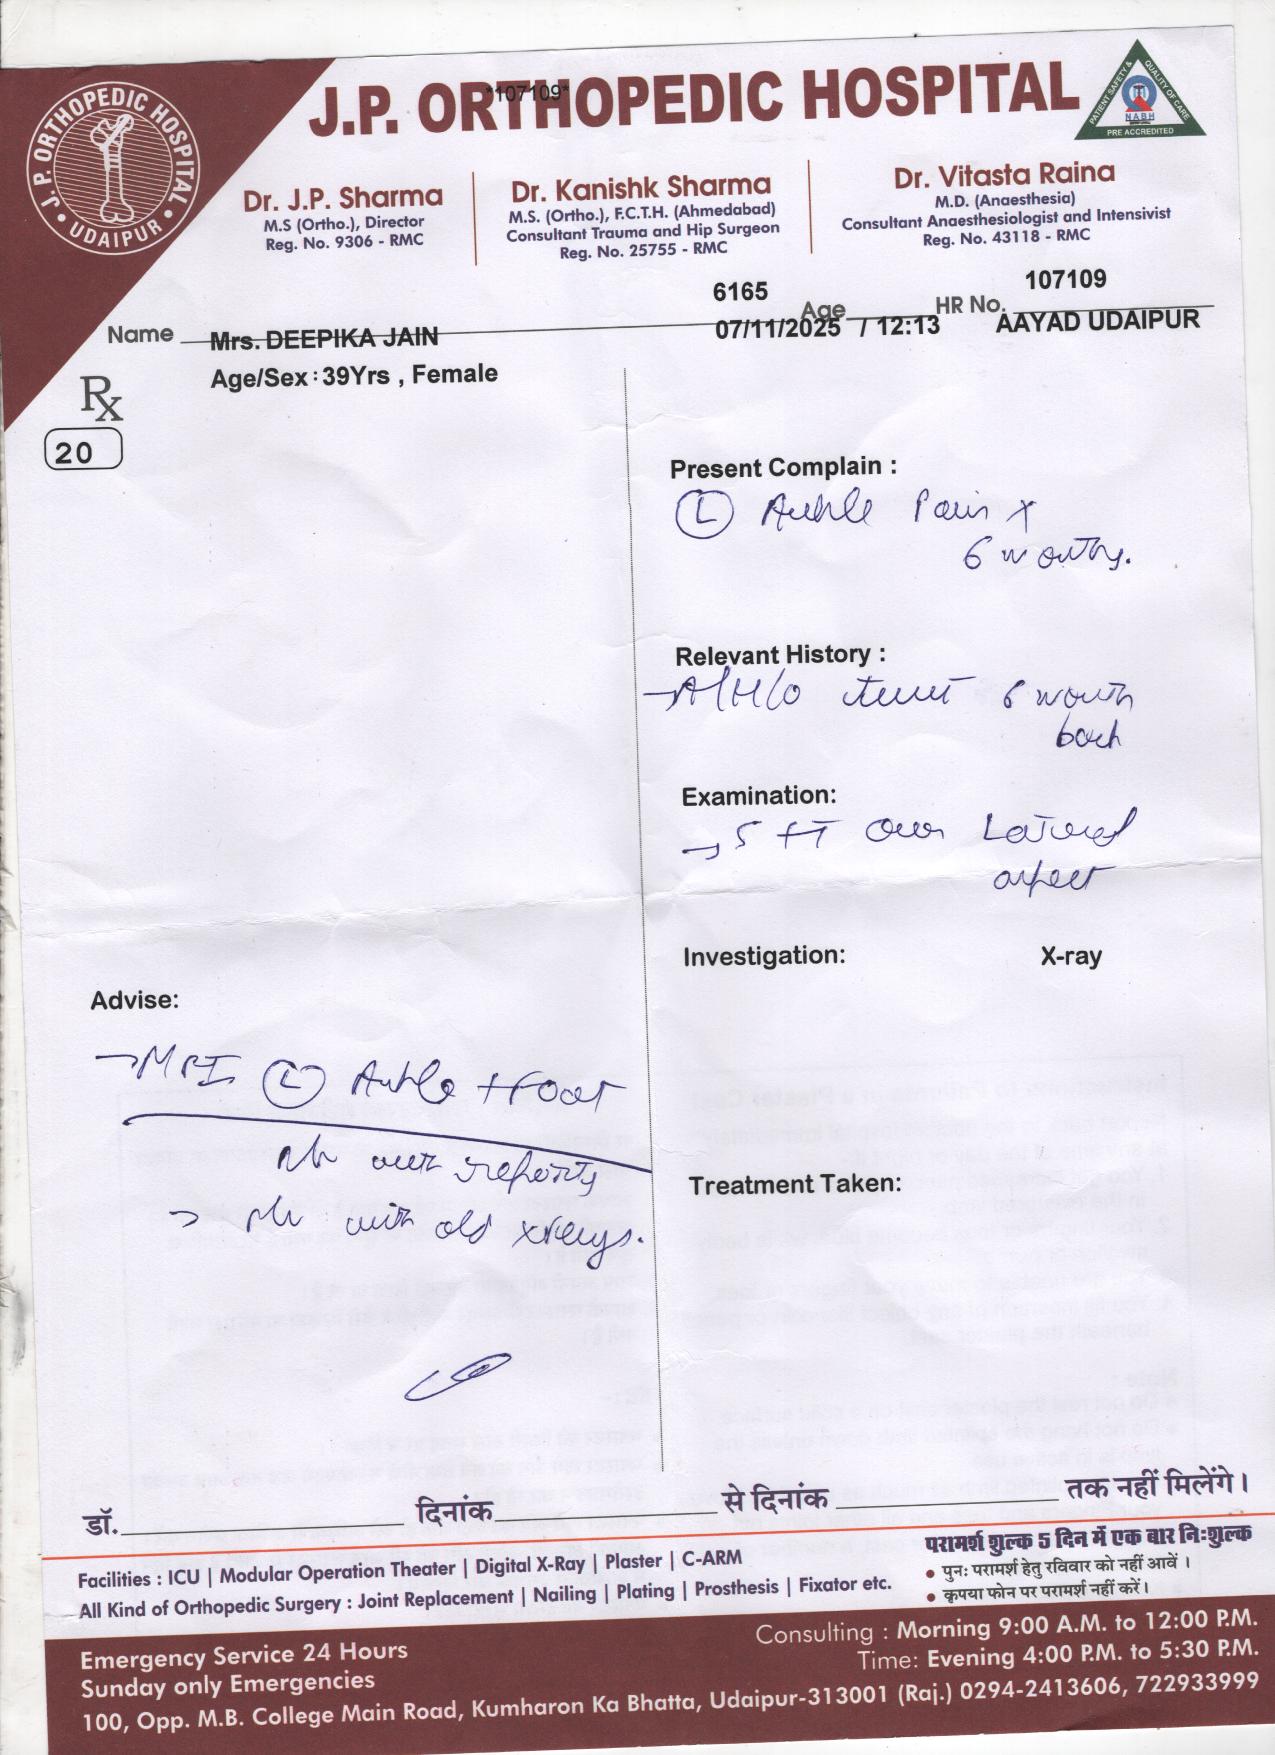 J.P. ORTHOPEDIC HOSPITAL
*107109*
J. P. ORTHOPEDIC HOSPITAL
• UDAIPUR •
PATIENT SAFETY & QUALITY OF CARE
NABH
PRE ACCREDITED
Dr. J.P. Sharma
M.S (Ortho.), Director
Reg. No. 9306 - RMC
Dr. Kanishk Sharma
M.S. (Ortho.), F.C.T.H. (Ahmedabad)
Consultant Trauma and Hip Surgeon
Reg. No. 25755 - RMC
Dr. Vitasta Raina
M.D. (Anaesthesia)
Consultant Anaesthesiologist and Intensivist
Reg. No. 43118 - RMC
6165
107109
Name Mrs. DEEPIKA JAIN
Age
HR No.
07/11/2025 / 12:13
AAYAD UDAIPUR
Age/Sex : 39Yrs , Female
Rx
20
Present Complain :
(L) Ankle Pain x
6 months.
Relevant History :
→ A/H/O 6 month
back
Examination:
→ over Lateral
aspect
Investigation: X-ray
Advise:
→ MRI (L) Ankle + Foot
with reports
→ with old xrays.
Treatment Taken:
डॉ. दिनांक से दिनांक तक नहीं मिलेंगे।
Facilities : ICU | Modular Operation Theater | Digital X-Ray | Plaster | C-ARM
All Kind of Orthopedic Surgery : Joint Replacement | Nailing | Plating | Prosthesis | Fixator etc.
परामर्श शुल्क 5 दिन में एक बार निःशुल्क
• पुनः परामर्श हेतु रविवार को नहीं आवें ।
• कृपया फोन पर परामर्श नहीं करें।
Emergency Service 24 Hours
Sunday only Emergencies
Consulting : Morning 9:00 A.M. to 12:00 P.M.
Time: Evening 4:00 P.M. to 5:30 P.M.
100, Opp. M.B. College Main Road, Kumharon Ka Bhatta, Udaipur-313001 (Raj.) 0294-2413606, 722933999